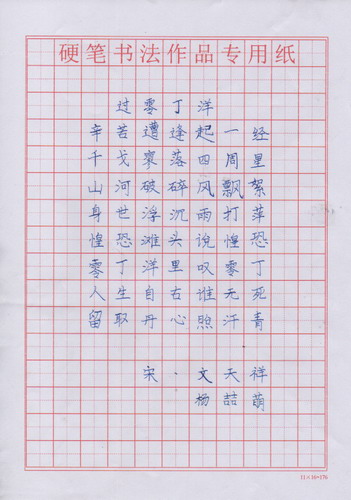 硬笔书法作品专用纸
过零丁洋
辛苦遭逢起一经
千戈寥落四周星
山河破碎风飘絮
身世浮沉雨打萍
惶恐滩头说惶恐
零丁洋里叹零丁
人生自右谁无死
留取丹心照汗青
宋·文天祥
杨喆萌
11×16=176